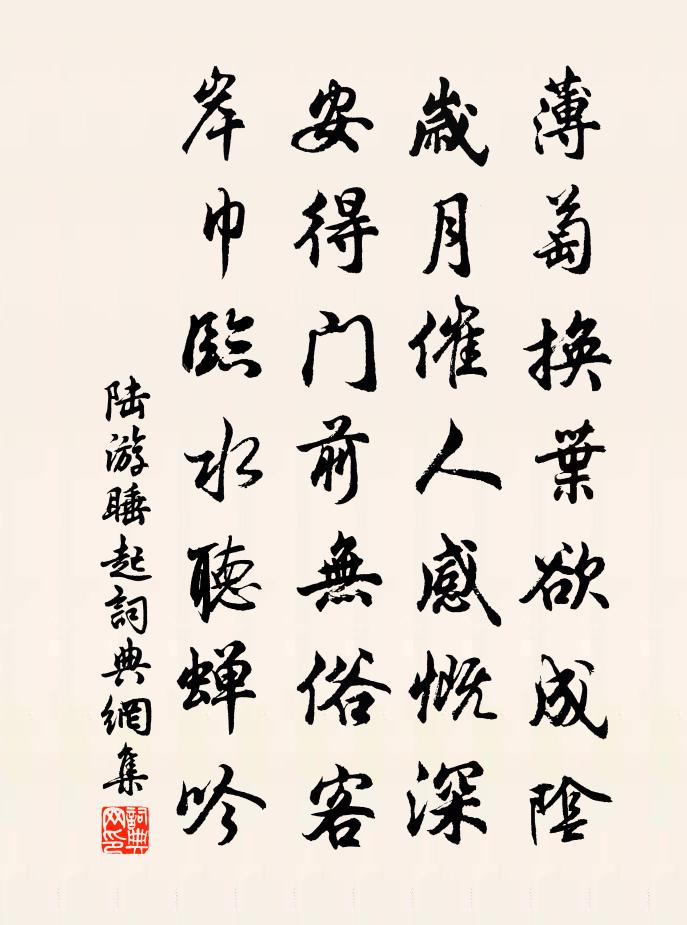 薄萄换葉欲成陰
歲月催人感慨深
安得门前無俗客
岸巾臨水聽蝉吟
陆游睡起詞典網集
詞典网印